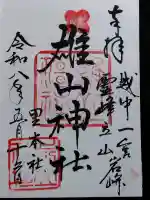 奉拝
越中一宮
霊峰立山
岩峅
雄山神社
里本社
令和八年五月十六日